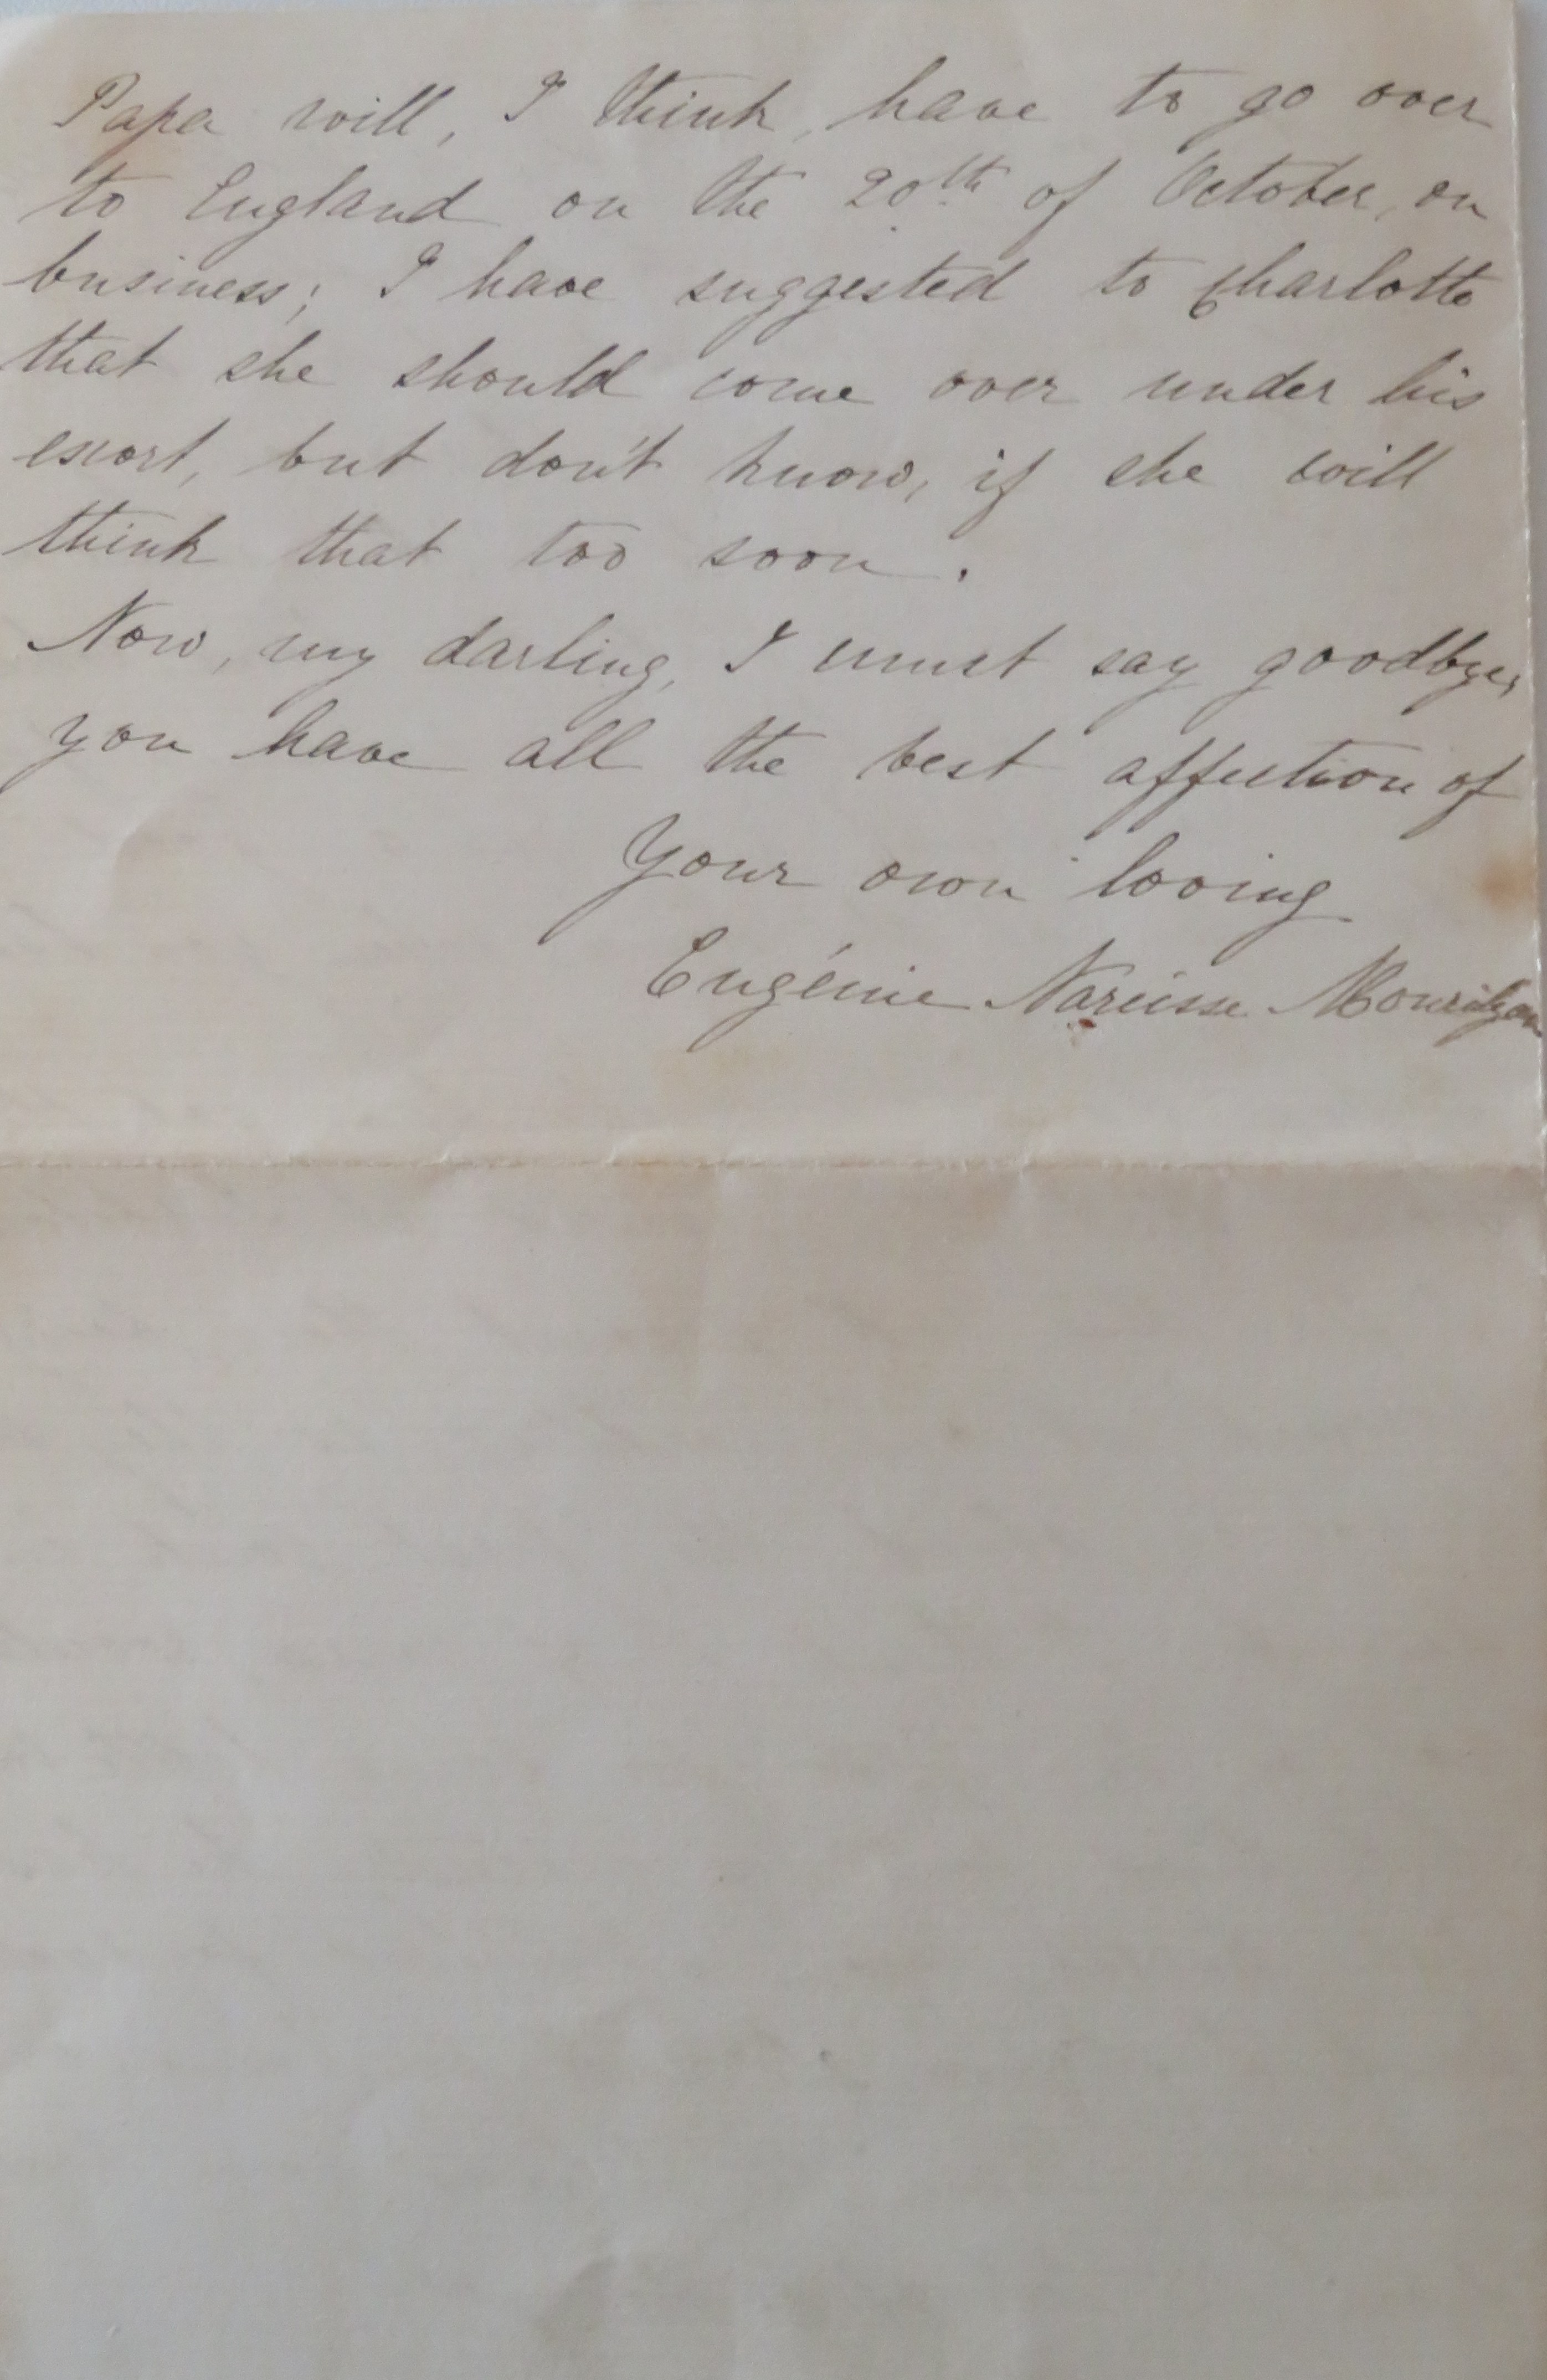 Papa will, I think, have to go over
to England on the 20th of October, on
business; I have suggested to Charlotte
that she should come over under his
escort, but don't know, if she will
think that too soon.
Now, my darling, I must say goodbye,
you have all the best affection of
Your own loving
Eugénie Narcisse